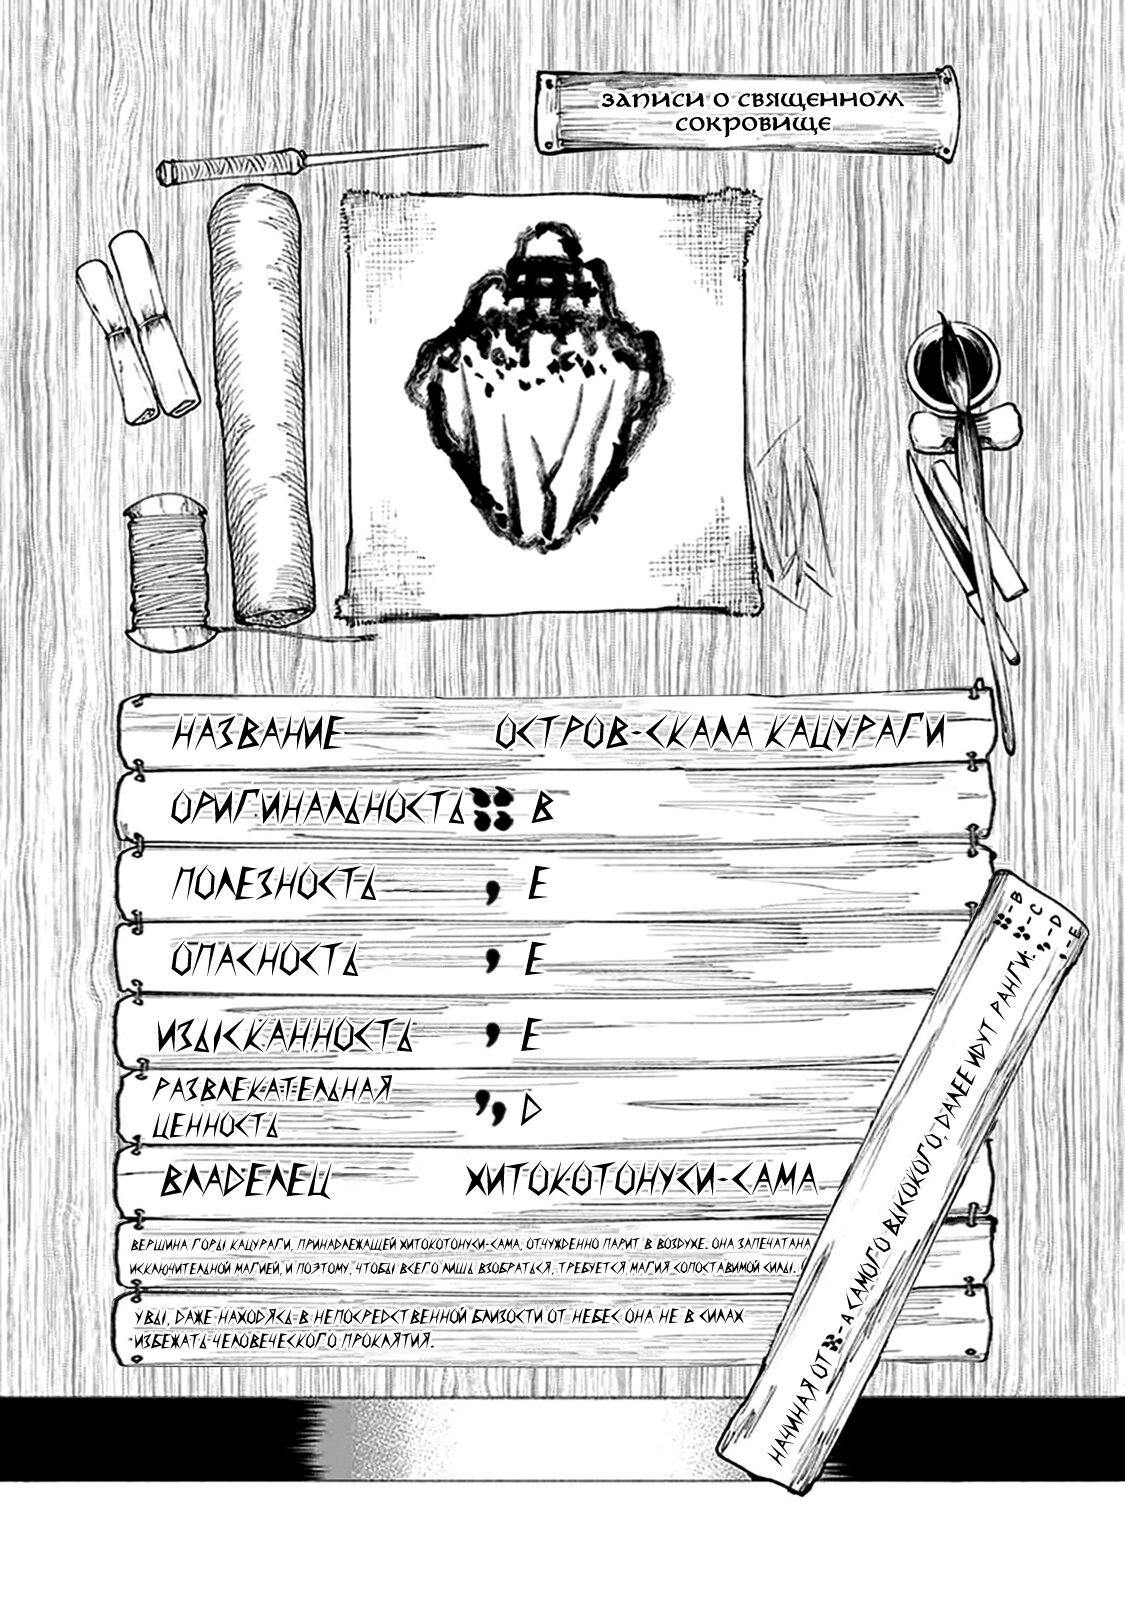 ЗАПИСИ О СВЯЩЕННОМ
СОКРОВИЩЕ
НАЗВАНИЕ ОСТРОВ-СКАЛА КАЦУРАГИ
ОРИГИНАЛЬНОСТЬ B
ПОЛЕЗНОСТЬ E
ОПАСНОСТЬ E
ИЗЫСКАННОСТЬ E
РАЗВЛЕКАТЕЛЬНАЯ
ЦЕННОСТЬ D
ВЛАДЕЛЕЦ ХИТОКОТОНУСИ-САМА
ВЕРШИНА ГОРЫ КАЦУРАГИ, ПРИНАДЛЕЖАЩЕЙ ХИТОКОТОНУСИ-САМА, ОТЧУЖДЕННО ПАРИТ В ВОЗДУХЕ. ОНА ЗАПЕЧАТАНА
ИСКЛЮЧИТЕЛЬНОЙ МАГИЕЙ, И ПОЭТОМУ, ЧТОБЫ ВСЕГО ЛИШЬ ВЗОБРАТЬСЯ, ТРЕБУЕТСЯ МАГИЯ СОПОСТАВИМОЙ СИЛЫ.
УВЫ, ДАЖЕ НАХОДЯСЬ В НЕПОСРЕДСТВЕННОЙ БЛИЗОСТИ ОТ НЕБЕС ОНА НЕ В СИЛАХ
ИЗБЕЖАТЬ ЧЕЛОВЕЧЕСКОГО ПРОКЛЯТИЯ.
НАЧИНАЯ ОТ - А САМОГО ВЫСОКОГО, ДАЛЕЕ ИДУТ РАНГИ:
- B
- C
- D
- E